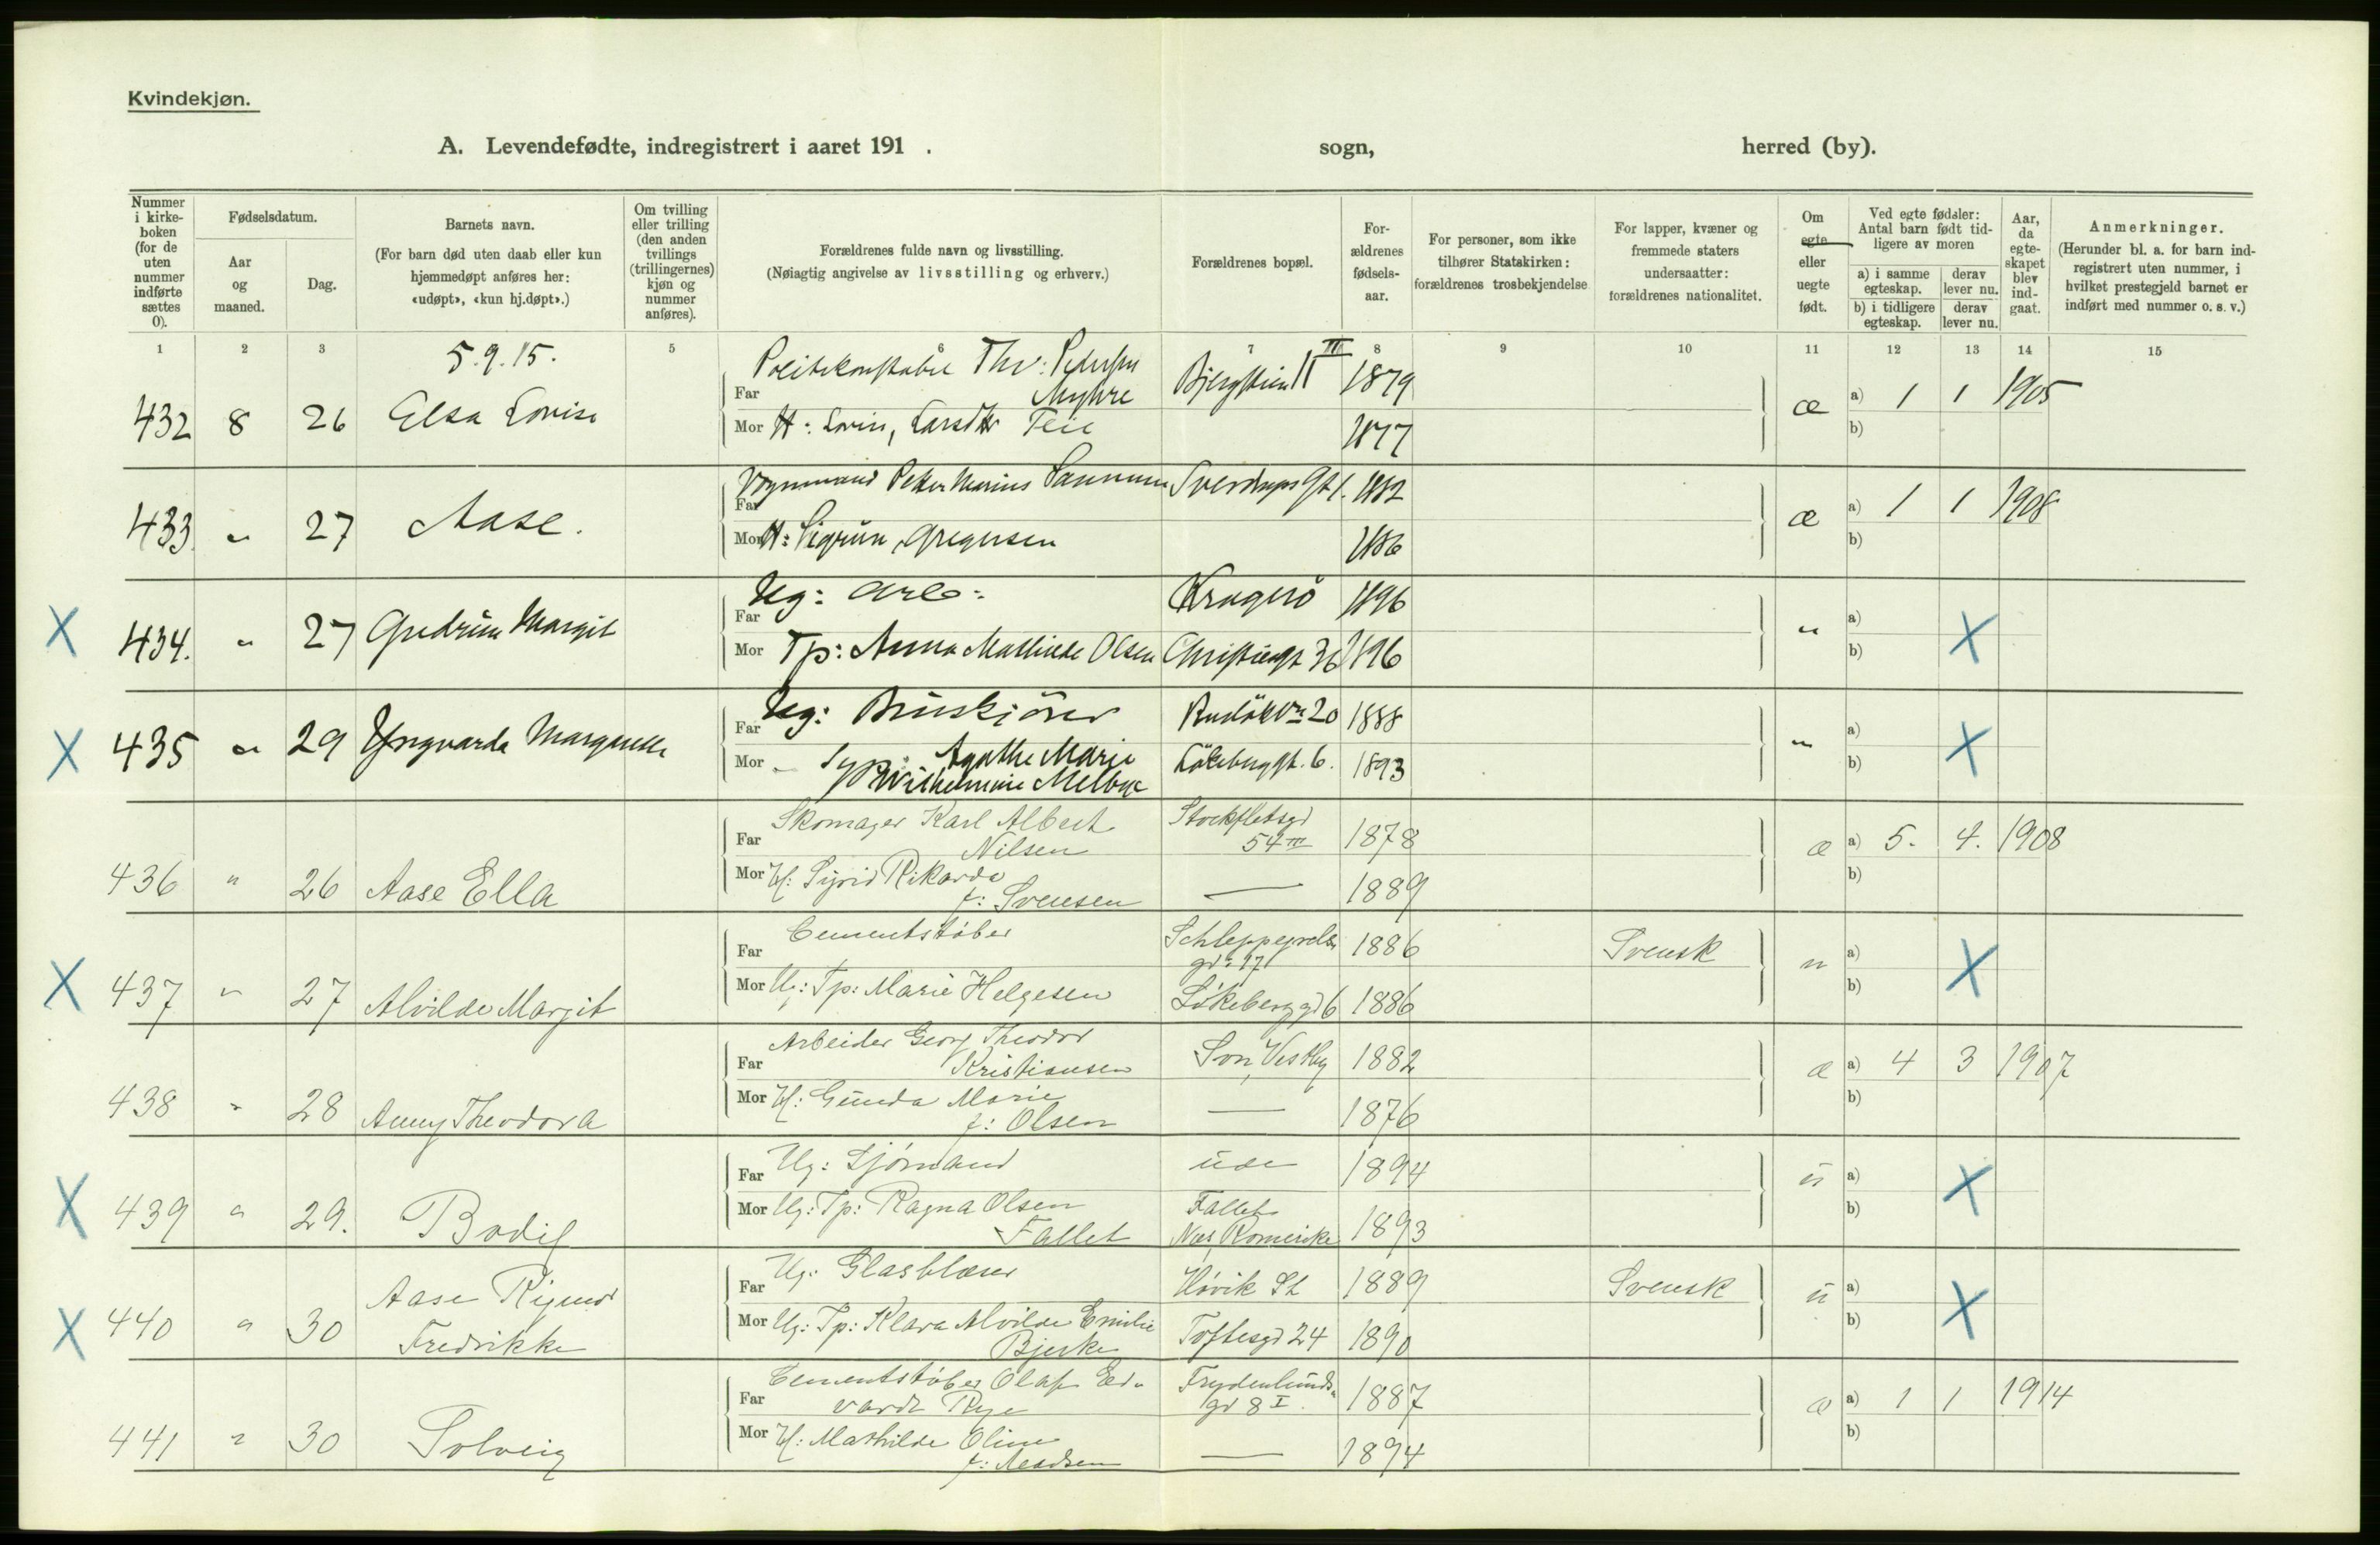 Kvindekjøn.
A. Levendefødte, indregistrert i aaret 191 . sogn, herred (by).
Nummer i kirkeboken (for de uten nummer indførte sættes 0).
Fødselsdatum.
Aar og maaned.
Dag.
Barnets navn.
(For barn død uten daab eller kun hjemmedøpt anføres her: «udøpt», «kun hj.døpt».)
Om tvilling eller trilling (den anden tvillings (trillingernes) kjøn og nummer anføres).
Forældrenes fulde navn og livsstilling.
(Nøiagtig angivelse av livsstilling og erhverv.)
Forældrenes bopæl.
Forældrenes fødselsaar.
For personer, som ikke tilhører Statskirken: forældrenes trosbekjendelse
For lapper, kvæner og fremmede staters undersaatter: forældrenes nationalitet.
Om egte eller uegte født.
Ved egte fødsler: Antal barn født tidligere av moren
a) i samme egteskap. derav lever nu.
b) i tidligere egteskap. derav lever nu.
Aar, da egteskapet blev indgaat.
Anmerkninger.
(Herunder bl. a. for barn indregistrert uten nummer, i hvilket prestegjeld barnet er indført med nummer o. s. v.)
1 2 3 5 6 7 8 9 10 11 12 13 14 15
5.9.15.
432 8 26 Elsa Lovise
Far Politikonstabel Thv: Pedersen Myhre 1879
Mor H: Lovise, Larsdtr Teie 1877
æ a) 1 1 1905
b)
433 " 27 Aase.
Far Petter Marius Sannum Sverdrups Gt 1. 1882
Mor H: Sigrun Gregersen 1886
æ a) 1 1 1908
b)
X 434. " 27 Gudrun Margit
Far Ug: Arb: Kragerö 1896
Mor Tp: Anna Mathilde Olsen Christiesgt 36 1896
" a) X
b)
X 435 " 29 Yngvarda Margrethe
Far Ug: Buskjörer 20 1888
Mor " Syp: Agathe Marie Wilhelmine Melbye Lökeberggt. 6. 1893
" a) X
b)
436 " 26 Aase Ella
Far Skomager Karl Albert Nilsen Stockfletsgd 54 III 1878
Mor H: Sigrid Rikarda f: Svensen — 1889
æ a) 5. 4. 1908
b)
X 437 " 27 Alvilde Margit
Far Cementstøber Schleppegrels gd: 17 1886 Svensk
Mor Ug: Tp: Marie Helgesen Løkeberggd 6 1886
u a) X
b)
438 " 28 Anny Theodora
Far Arbeider Georg Theodor Kristiansen Son, Vestby 1882
Mor H: Gunda Marie f: Olsen — 1876
æ a) 4 3 1907
b)
X 439 " 29. Bodil
Far Ug: Sjømand ude 1894
Mor Ug: Tp: Ragna Olsen Fallet Fallet Næs, Romerike 1893
u a) X
b)
X 440 " 30 Aase Rigmor Fredrikke
Far Ug: Glasblæser Høvik St 1889 Svensk
Mor Ug: Tp: Klara Alvilde Emilie Bjerke Toftesgd 24 1890
u a) X
b)
441 " 30 Solveig
Far Cementstøber Olaf Edvardt Rye Frydenlundsgd 8 I. 1887
Mor H: Mathilde Oline f: Madsen — 1894
æ a) 1 1 1914
b)